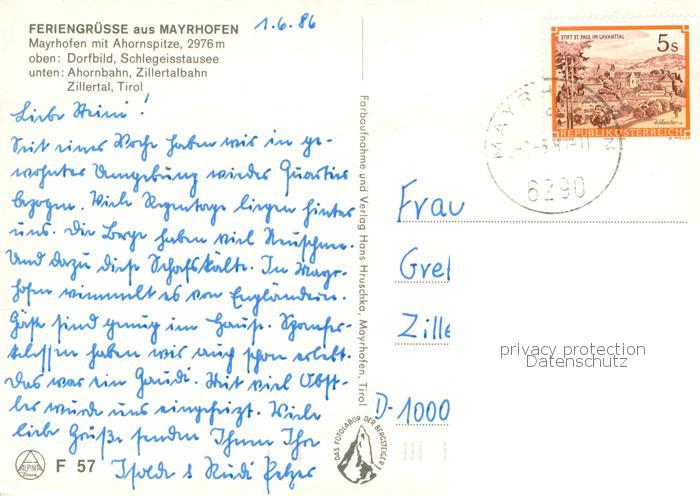 FERIENGRÜSSE aus MAYRHOFEN
Mayrhofen mit Ahornspitze, 2976 m
oben: Dorfbild, Schlegeisstausee
unten: Ahornbahn, Zillertalbahn
Zillertal, Tirol
1.6.86
Liebe Heini!
Seit einer Woche haben wir in ge-
wohnter Umgebung wieder Quartier
bezogen. Viele Regentage liegen hinter
uns. Die Berge haben viel Neuschnee.
Und dazu diese Schafskälte. In Mayr-
hofen wimmelt es von Engländern.
Gäste sind genug im Hause.
haben wir auch schon erlebt.
Das war ein Gaudi. Mit viel Obst-
ler wurde uns eingeheizt. Viele
liebe Grüße senden Ihnen Ihre
Isolde & Rudi
ALPINA
F 57
Farbaufnahme und Verlag Hans Hruschka, Mayrhofen, Tirol
DAS FOTOLABOR DER BERGSTEIGER
STIFT ST. PAUL IM LAVANTTAL
5s
REPUBLIK ÖSTERREICH
MAYRH
6290
Frau
Gret
Zille
D-1000
privacy protection
Datenschutz